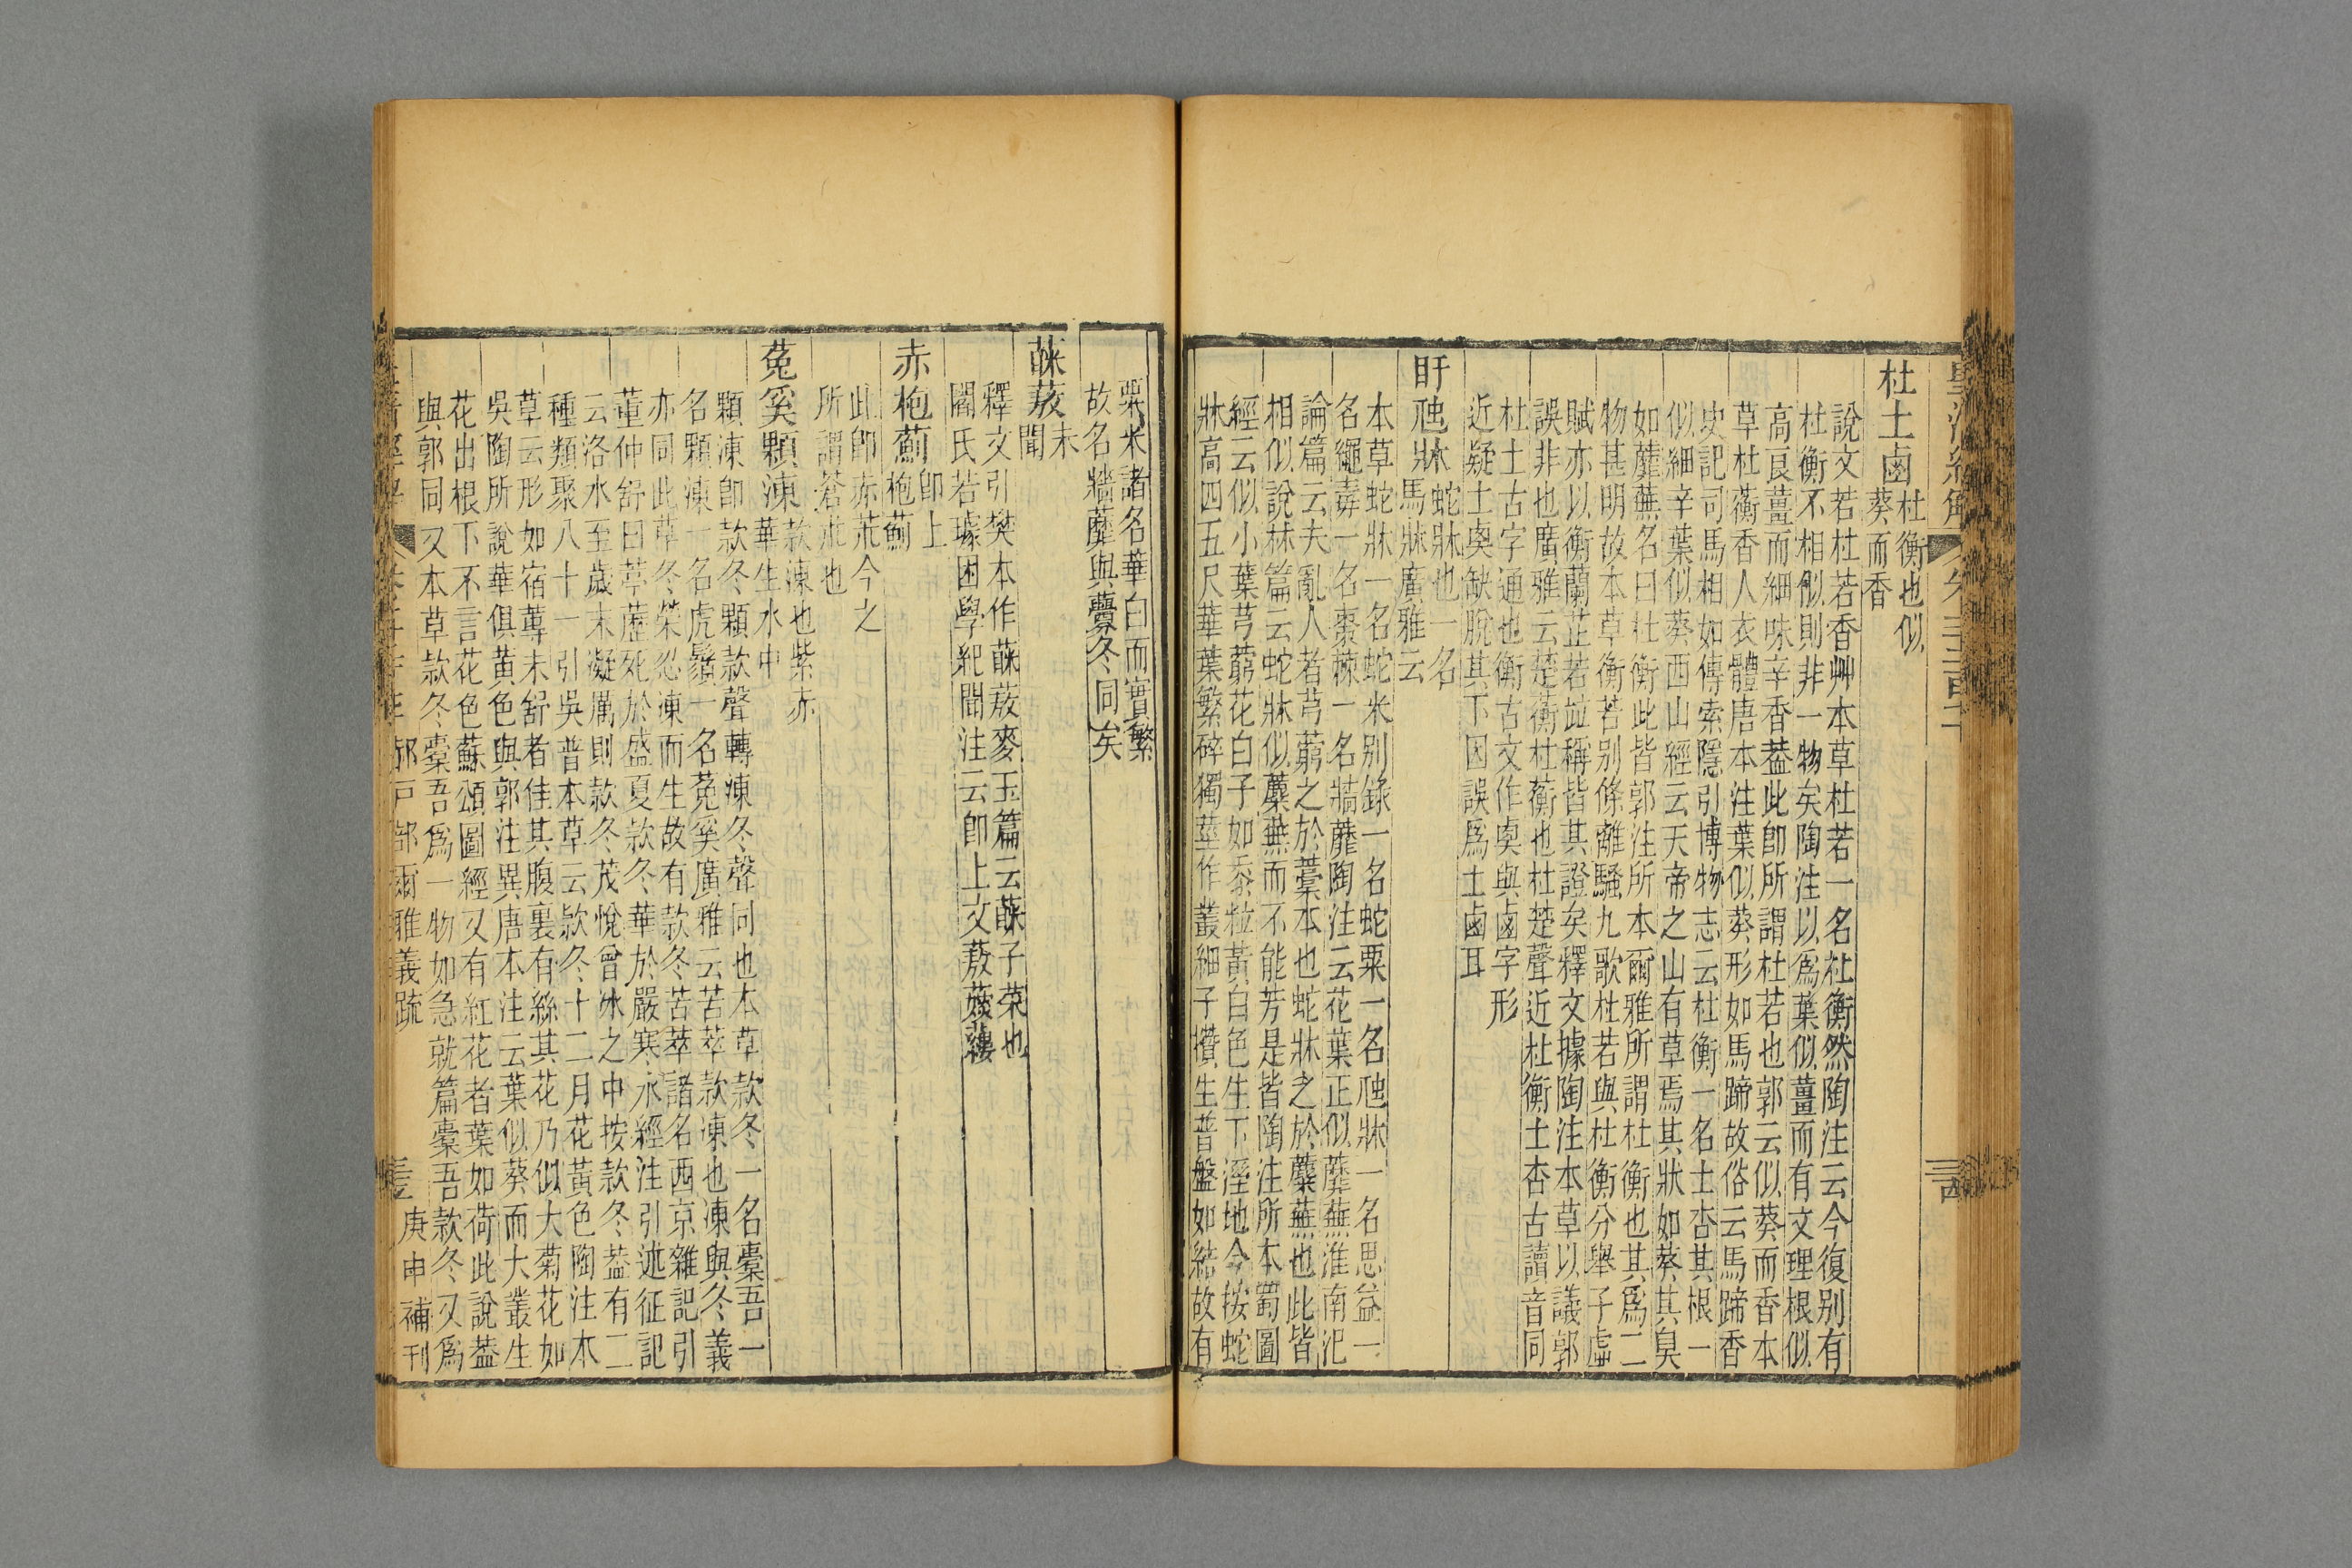 杜土鹵
杜衡也似
葵而香
說文若杜若香艸本草杜若一名杜衡然陶注云今復别有
杜衡不相佀則非一物矣陶注以爲葉似薑而有文理根似
高良薑而細味辛香葢此卽所謂杜若也郭云似葵而香本
草杜蘅香人衣體唐本注葉似葵形如馬蹄故俗云馬蹄香
史記司馬相如傳索隱引博物志云杜衡一名土杏其根一
似細辛葉似葵西山經云天帝之山有草焉其狀如葵其臭
如蘼蕪名曰杜衡此皆郭注所本爾雅所謂杜衡也其爲二
物甚明故本草衡若别條離騷九歌杜若與杜衡分舉子虛
賦亦以衡蘭芷若竝稱皆其證矣釋文據陶注本草以議郭
誤非也廣雅云楚蘅杜蘅也杜楚聲近杜衡土杏古讀音同
杜土古字通也衡古文作奥與鹵字形
近疑土奥缺脫其下因誤爲土鹵耳
盱虺牀
蛇牀也一名
馬牀廣雅云
本草蛇牀一名蛇米别錄一名蛇粟一名虺牀一名思益一
名繩毒一名棗棘一名牆蘼陶注云花葉正似蘼蕪淮南氾
論篇云夫亂人者芎藭之於藁本也蛇牀之於蘪蕪也此皆
相似說林篇云蛇牀似蘪蕪而不能芳是皆陶注所本蜀圖
經云似小葉芎藭花白子如黍粒黃白色生下溼地今按蛇
牀高四五尺華葉繁碎獨莖作叢細子攢生普盤如結故有
粟米諸名華白而實繁
故名牆蘼與虋冬同矣
蕛蔜
未
聞
釋文引樊本作蕛蔜麥玉篇云蕛子菜也
閻氏若璩困學紀聞注云卽上文蔜䕅䕞
赤枹薊
卽上
枹薊
此卽赤朮今之
所謂蒼朮也
菟奚顆涷
款涷也紫赤
華生水中
顆涷卽款冬顆款聲轉涷冬聲同也本草款冬一名橐吾一
名顆涷一名虎鬚一名菟奚廣雅云苦萃款涷也涷與冬義
亦同此草冬榮忍凍而生故有款冬苦萃諸名西京雜記引
董仲舒曰葶藶死於盛夏款冬華於嚴寒水經注引述征記
云洛水至歲末凝厲則款冬茂悅曾冰之中按款冬葢有二
種類聚八十一引吳普本草云款冬十二月花黃色陶注本
草云形如宿蓴未舒者佳其腹裏有絲其花乃似大菊花如
吳陶所說華俱黃色與郭注異唐本注云葉似葵而大叢生
花出根下不言花色蘇頌圖經又有紅花者葉如荷此說葢
與郭同又本草款冬橐吾爲一物如急就篇橐吾款冬又爲
郝戶部爾雅義疏
庚申補刊